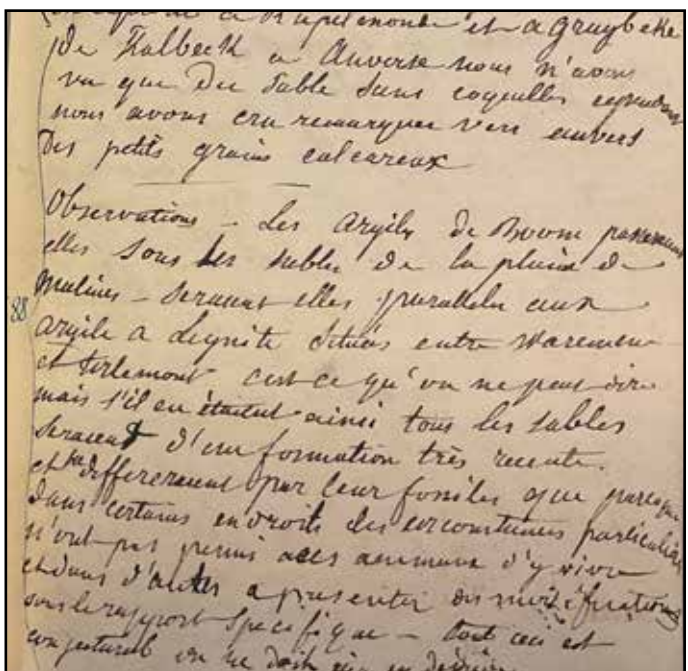 a Rupelmonde et a Gruybeke
de Kalbeck a Anverse nous n'avons
vu que du sable sans coquilles cependant
nous avons cru remarquer vers anvers
des petits grains calcareux
Observations - Les argiles de Boom passeraient
elles sous les sables de la plaine de
Malines - seraient elles paralleles aux
88
argile a Lignite situés entre Waremme
et tirlemont c'est ce qu'on ne peut dire
mais s'il en étaient ainsi tous les sables
seraient d'une formation très recente.
et ne differeraient par leur fossiles que parceque
dans certains endroits des circonstances particulieres
n'ont pas permi a ces animaux d'y vivre
et dans d'autres a presenter des modifications
sous le rapport specifique - tout ceci est
conjectural on ne doit rien en